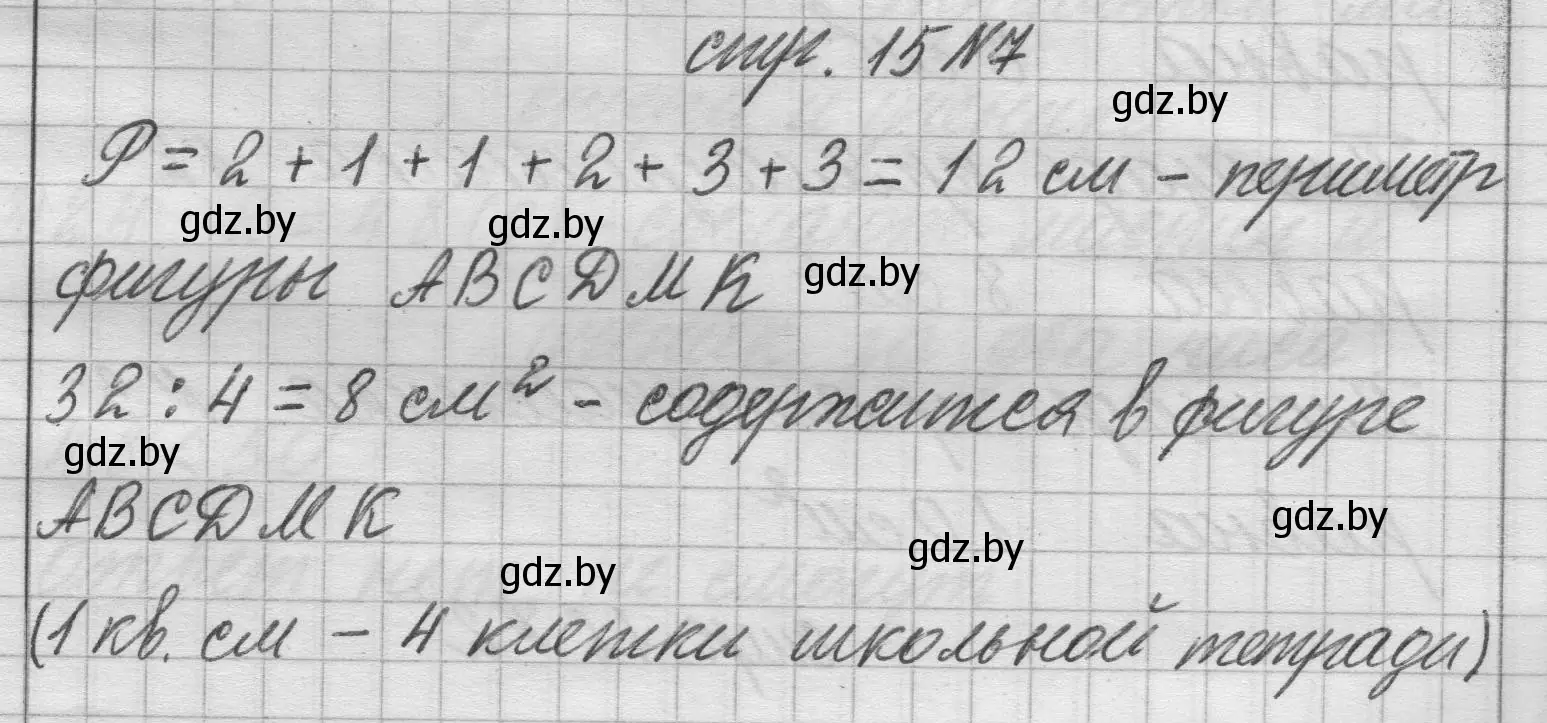 стр. 15 №7
gdz.by
P = 2 + 1 + 1 + 2 + 3 + 3 = 12 см - периметр
gdz.by gdz.by
фигуры ABCDMK gdz.by
32 : 4 = 8 см² - содержится в фигуре
gdz.by
ABCDMK gdz.by
gdz.by gdz.by
(1 кв. см - 4 клетки школьной тетради)